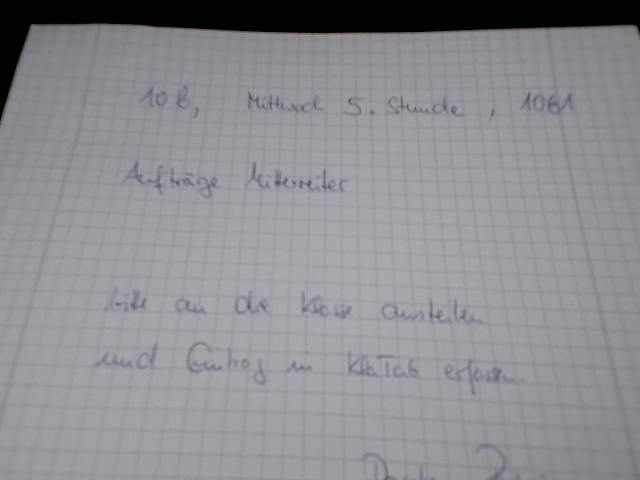 10b, Mittwoch 5. Stunde, 1061
Aufträge Mitterreiter
bitte an die Klasse austeilen
und Eintrag in KlaTab erfassen.